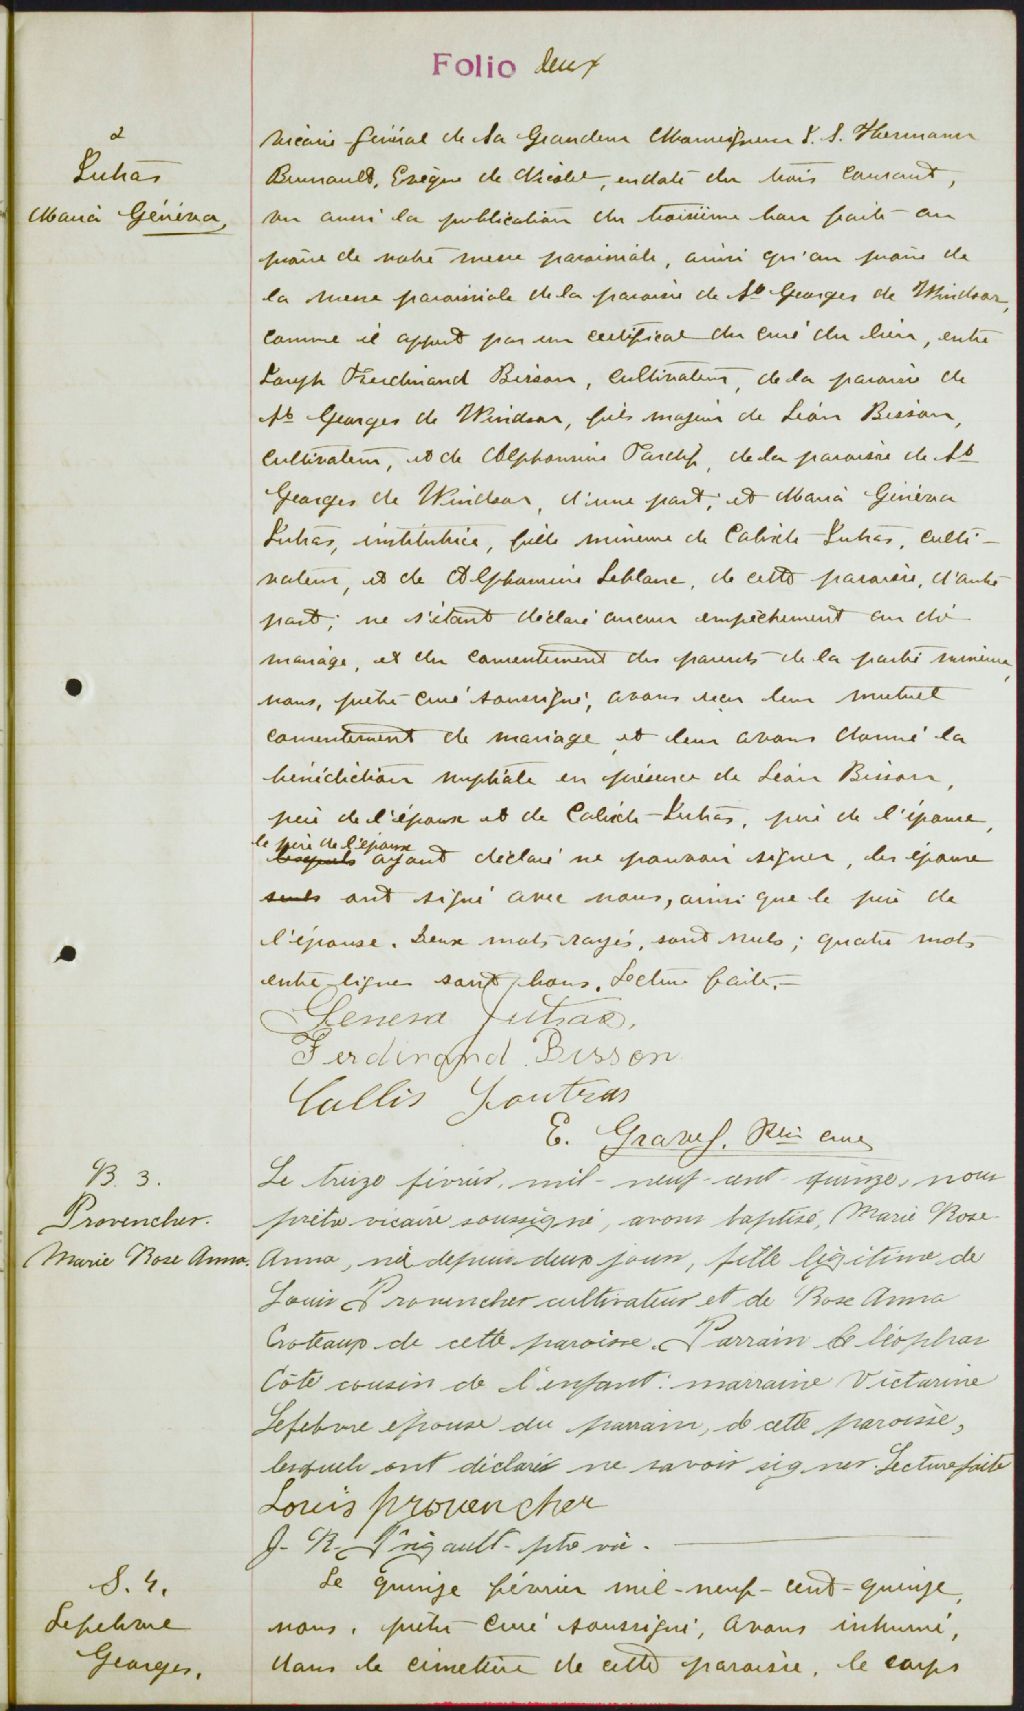 Folio deux
&
Jutras
Maria Généva
vicaire général de Sa Grandeur Monseigneur J. S. Hermann
Brunault, Evêque de Nicolet, endaté du trois courant,
vu aussi la publication du troisième ban faite au
prône de notre messe paroissiale, ainsi qu'au prône de
la messe paroissiale de la paroisse de St Georges de Windsor,
comme il appert par un certificat du curé du lieu, entre
Joseph Ferdinand Bisson, cultivateur, de la paroisse de
St Georges de Windsor, fils majeur de Léon Bisson,
cultivateur, et de Alphonsine Tardif, de la paroisse de St
Georges de Windsor, d'une part; et Maria Généva
Jutras, institutrice, fille mineure de Calixte Jutras, culti-
vateur, et de Alphonsine Leblanc, de cette paroisse, d'autre
part; ne s'étant déclaré aucun empêchement au dit
mariage, et du consentement des parents de la partie mineure,
nous, prêtre curé soussigné, avons reçu leur mutuel
consentement de mariage et leur avons donné la
bénédiction nuptiale en présence de Léon Bisson,
père de l'époux et de Calixte Jutras, père de l'épouse,
le père de l'époux
lesquels ayant déclaré ne pouvoir signer, les époux
seuls ont signé avec nous, ainsi que le père de
l'épouse. Deux mots rayés, sont nuls; quatre mots
entre lignes sont bons. Lecture faite.—
Geneva Jutras.
Ferdinand Bisson
Callis Joutras
E. Gravel, Ptre curé
B. 3.
Provencher.
Marie Rose Anna.
Le treize février, mil-neuf-cent-quinze, nous
prêtre vicaire soussigné, avons baptisé, Marie Rose
Anna, née depuis deux jours, fille légitime de
Louis Provencher cultivateur et de Rose Anna
Croteaup de cette paroisse. Parrain Cléophas
Côté cousin de l'enfant: marraine Victorine
Lefebvre épouse du parrain, de cette paroisse,
lesquels ont déclaré ne savoir signer. Lecture faite
Louis provencher
J. R. Prigault-ptre vic.
S. 4.
Lefebvre
Georges.
Le quinze février mil-neuf-cent-quinze,
nous, prêtre curé soussigné, avons inhumé,
dans le cimetière de cette paroisse, le corps